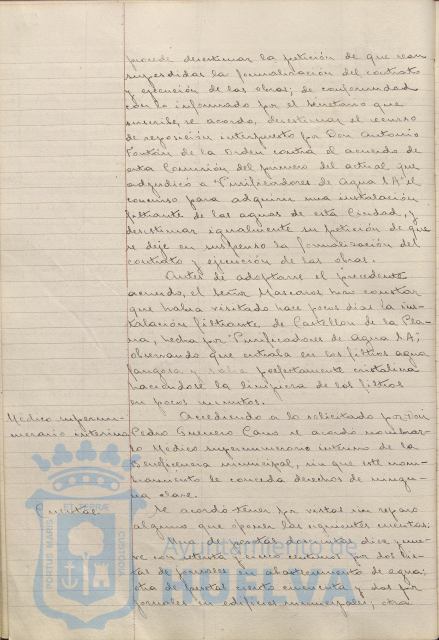 procede desestimar la petición de que sean
suspendidas la formalización del contrato
y ejecución de las obras; de conformidad
con lo informado por el Secretario que
suscribe, se acordo, desestimar el recurso
de reposición interpuesto por Don Antonio
de la Orden contra el acuerdo de
esta Comisión del primero del actual que
adjudicó a "Purificadores de Agua S A" el
concurso para adquirir una instalación
filtrante de las aguas de esta Ciudad, y
desestimar igualmente su petición de que
se deje en suspenso la formalización del
contrato y ejecución de las obras.
Antes de adoptarse el precedente
acuerdo, el Señor Mascaros hizo constar
que habia visitado hace pocos dias la ins-
talación filtrante, de Castellon de la Pla-
na, hecha por "Purificadores de Agua S A",
observando que entraba en los filtros agua
fangosa y salia perfectamente cristalina
haciendose la limpieza de los filtros
en pocos minutos.
Médico supernu-
merario interino
Accediendo a lo solicitado por Don
Pedro Guerrero Cano se acordo nombrar-
lo Medico supernumerario interino de la
Beneficencia municipal, sin que este nom-
bramiento le conceda derechos de ningu-
na clase.
Cuentas.
Se acordo tener por vistas sin reparo
alguno que oponer las siguientes cuentas:
Una de pesetas doscientas diez y nue-
ve con ochenta y cinco centimos por dos lis-
tas de jornales en abastecimiento de agua;
otra de pesetas ciento cincuenta y dos por
jornales en edificios municipales; otra
PORTUS MARIS
CUSTODIA
Ayuntamiento de
HUELVA